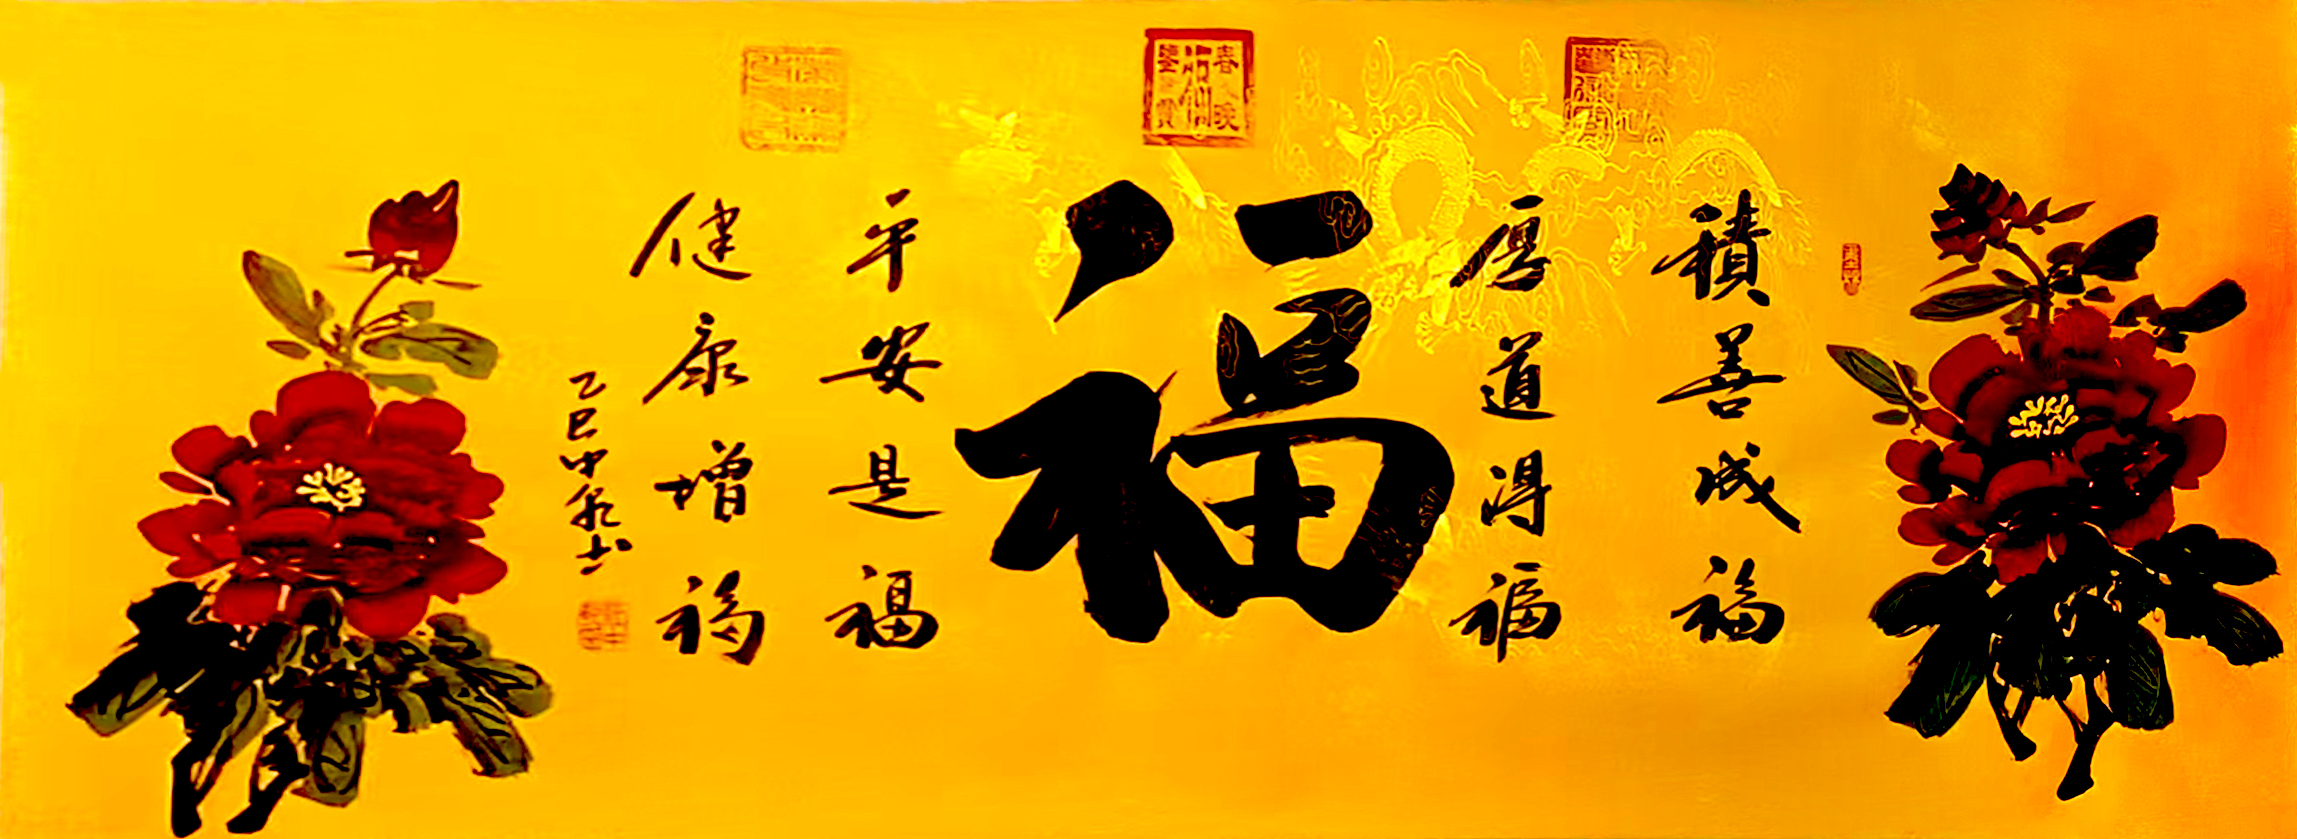 積善成福
厚道得福
福
平安是福
健康增福
乙巳中秋